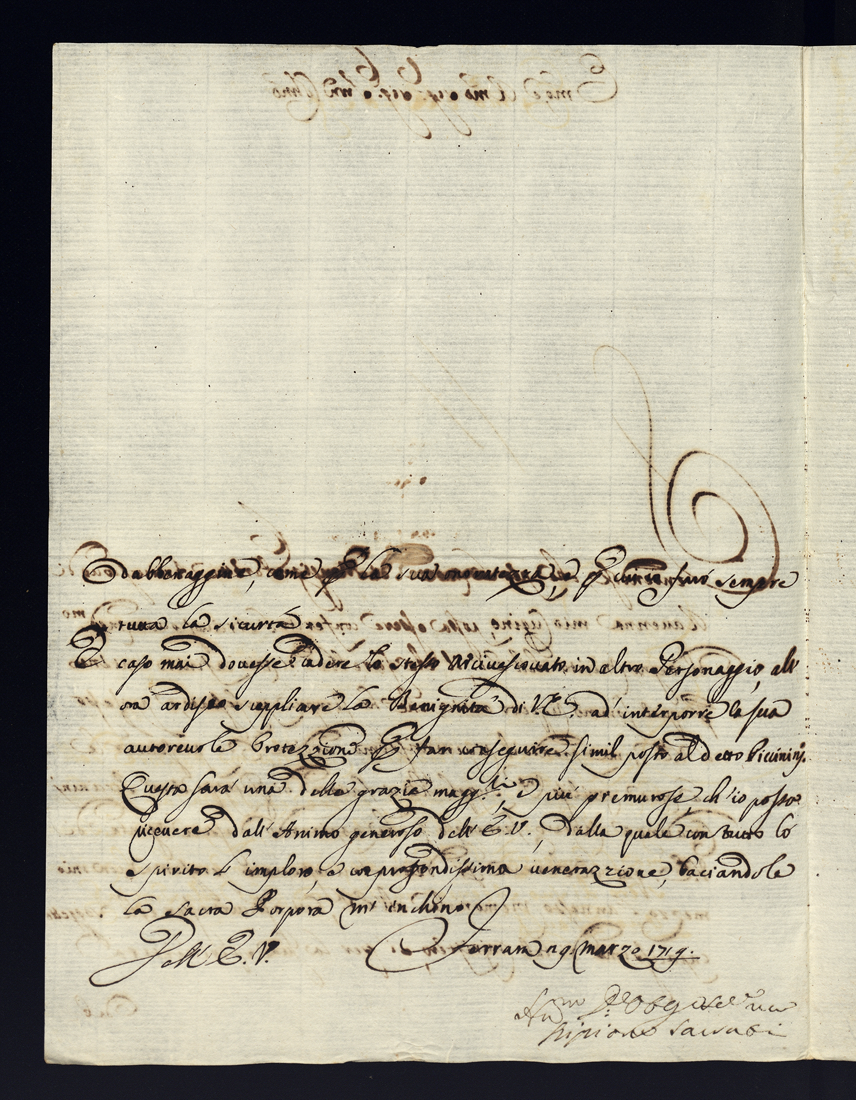 dabbenaggine, come per la sua onoratezza, e per cui ne farò sempre
tutta la sicurtà
E caso mai dovesse cadere lo stesso Arcivescovato in altro Personaggio, all'
ora ardisco suppliare la Benignità di V.E. ad interporre la sua
autorevole Protezzione per far conseguire simil posto al detto Piccinini.
Questa sarà una delle grazie magg.ri, e più premurose, ch'io possa
ricevere dall'Animo generoso dell'E.V., dalla quale con tutto lo
spirito l'imploro, e con profondissima venerazzione, baciandole
la Sacra Porpora m'inchino
Dell'E.V.
Ferrara 9 Marzo 1719.
Scipione Sacrati